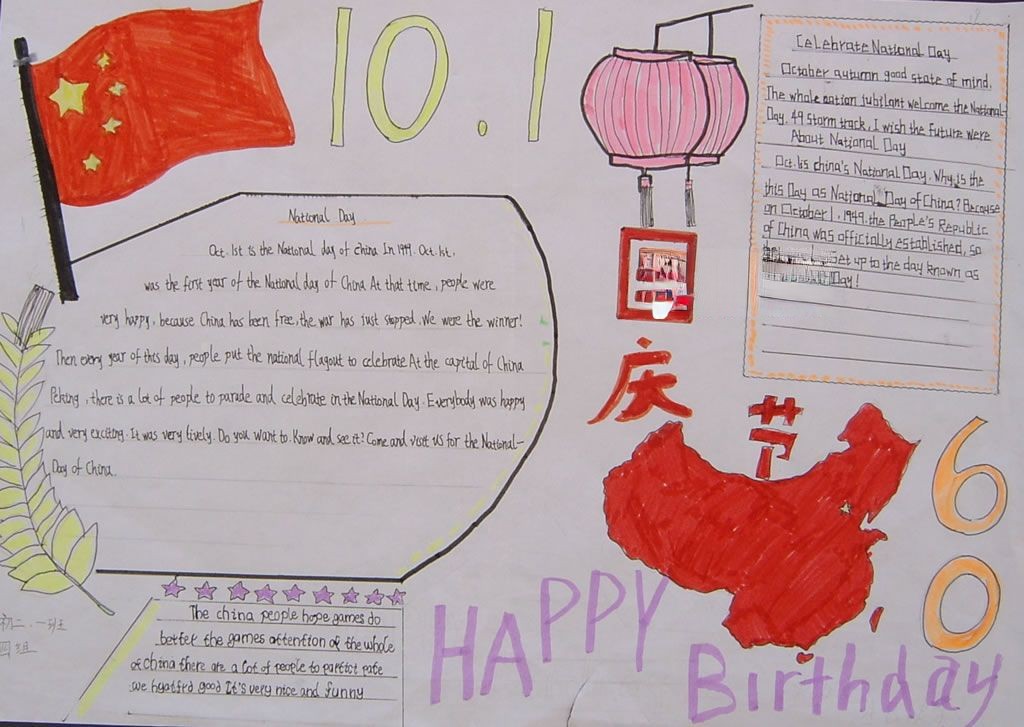 10.1
Celebrate National Day
October autumn good state of mind.
The whole nation jubilant welcome the National-
Day. 49 storm track, I wish the future were
About National Day
Oct. 1 is china's National Day. Why is the
this Day as National Day of China? Because
on October 1, 1949, the People's Republic
of China was officially established, so
set up to the day known as
Day!
National Day
Oct. 1st is the National day of China In 1949. Oct. 1st.
was the first year of the National day of China At that time, people were
very happy, because China has been free, the war has just stopped. We were the winner!
Then every year of this day, people put the national flagout to celebrate At the capital of China
Peking, there is a lot of people to parade and celebrate in the National Day. Everybody was happy
and very exciting. It was very lively. Do you want to Know and see it? Come and visit us for the National-
Day of China.
国
庆
节
60
The china people hope games do
better the games attention of the whole
of china there are a lot of people to
we good It's very nice and funny
初二.一班
四组
HAPPY
Birthday